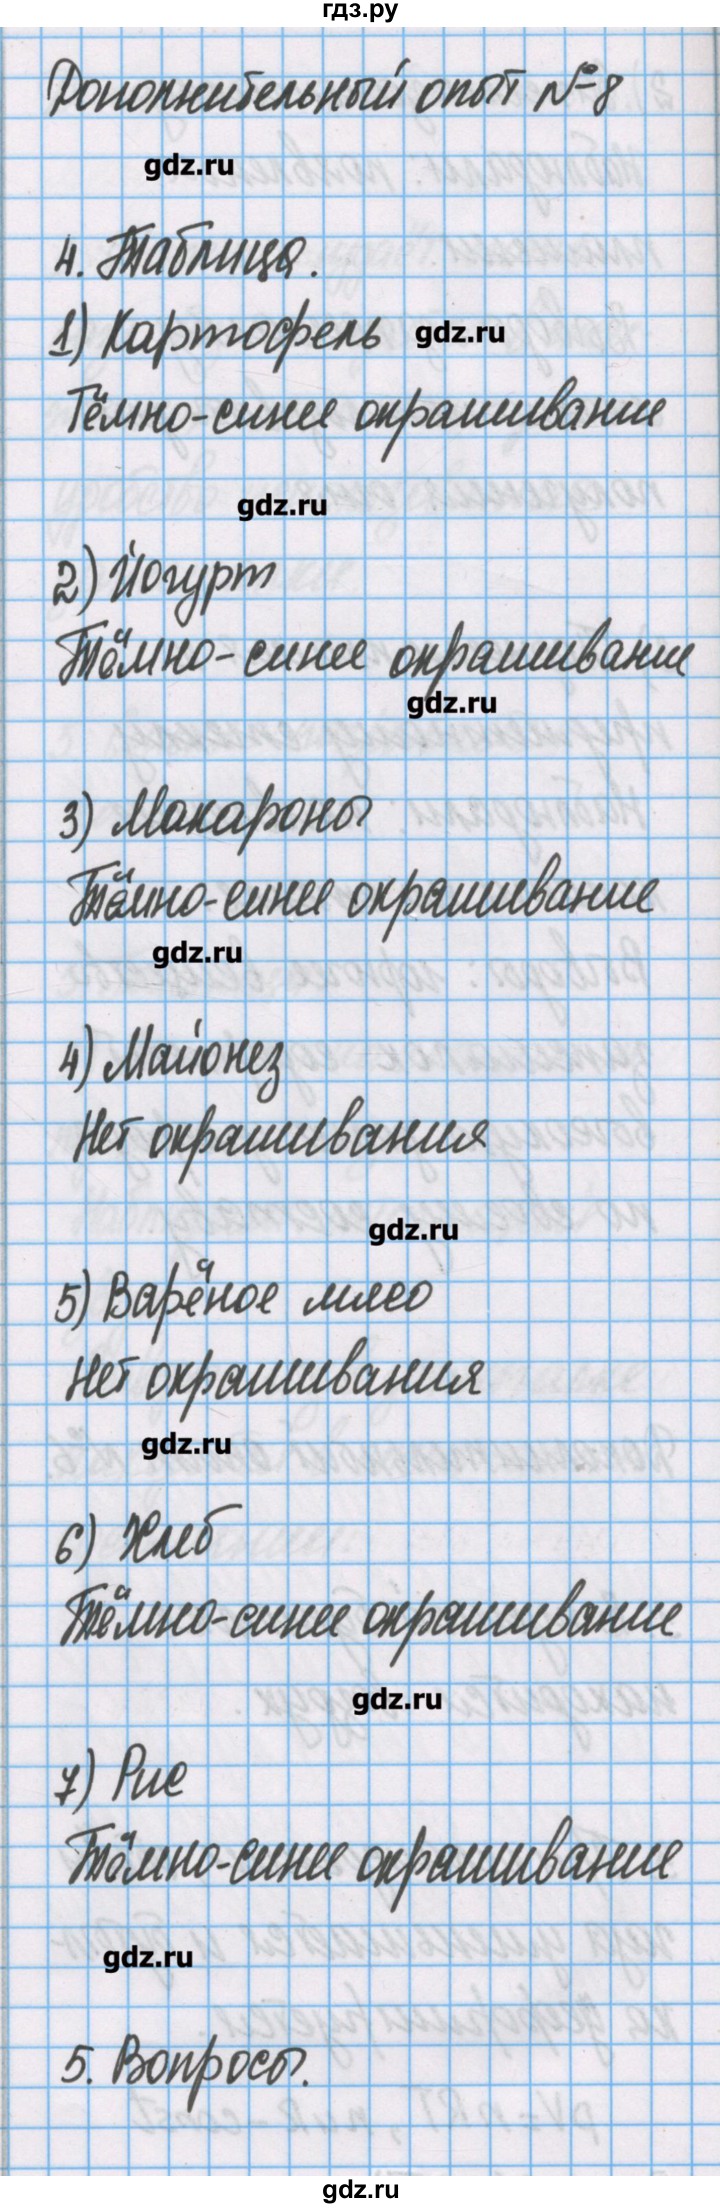 гдз.ру
Дополнительный опыт №8
gdz.ru
4. Таблица.
1) Картофель
gdz.ru
Тёмно-синее окрашивание
gdz.ru
2) Йогурт
Тёмно-синее окрашивание
gdz.ru
3) Макароны
Тёмно-синее окрашивание
gdz.ru
4) Майонез
Нет окрашивания
gdz.ru
5) Варёное мясо
Нет окрашивания
gdz.ru
6) Хлеб
Тёмно-синее окрашивание
gdz.ru
7) Рис
Тёмно-синее окрашивание
gdz.ru
5. Вопросы.
gdz.ru